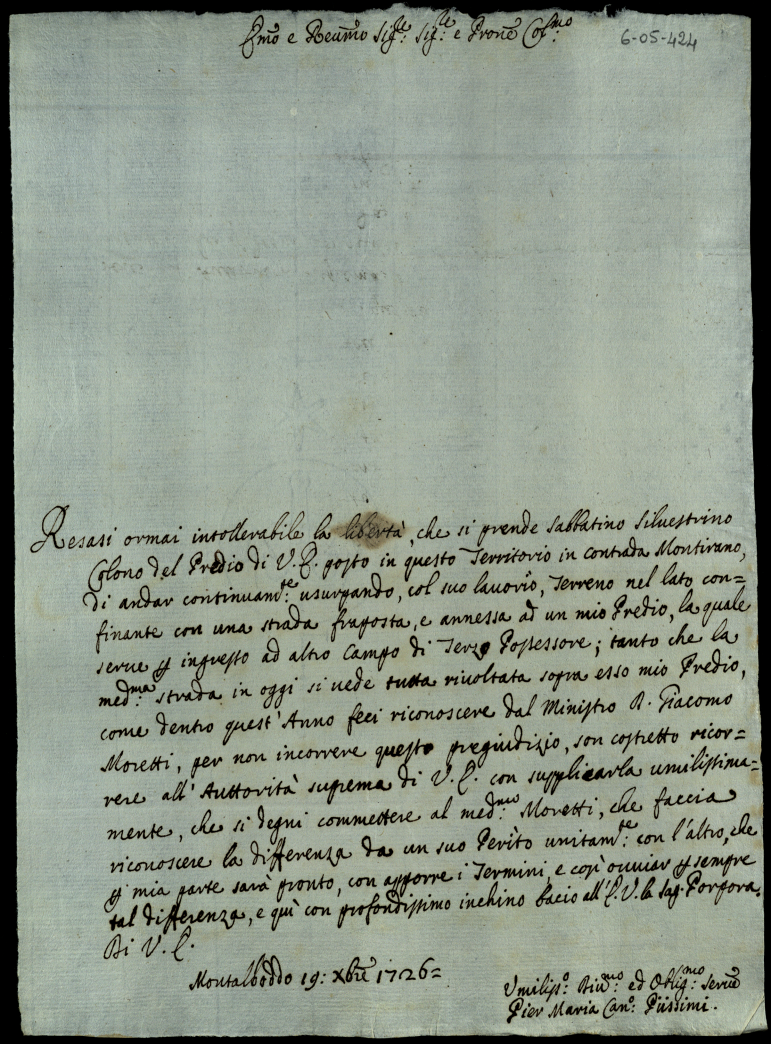 Emo e Reumo Sig:re Sig:re e Prone Col:mo
6-05-424
Resasi ormai intollerabile la libertà, che si prende Sabbatino Silvestrino
Colono del Predio di V. E. posto in questo Territorio in contrada Montirano,
di andar continuam:te usurpando, col suo lauorio, Terreno nel lato con=
finante con una strada fraposta, e annessa ad un mio Predio, la quale
serue p ingresso ad altro Campo di Terzo Possessore; tanto che la
med:ma strada in oggi si uede tutta riuoltata sopra esso mio Predio,
come dentro quest'Anno feci riconoscere dal Ministro D. Giacomo
Moretti, per non incorrere questo pregiudizio, son costretto ricor=
rere all'Auttorità suprema di V. E. con supplicarla umilissima=
mente, che si degni commettere al med:mo Moretti, che faccia
riconoscere la differenza da un suo Perito unitam:te con l'altro, che
p mia parte sarà pronto, con apporre i Termini, e così ouuiar p sempre
tal differenza, e quì con profondissimo inchino bacio all'E. V. la Sag. Porpora.
Di V. E.
Montalboddo 19: Xbre 1726=
Umiliss:o Diu:mo ed Oblig:mo Serue
Pier Maria Can:o Piissimi.